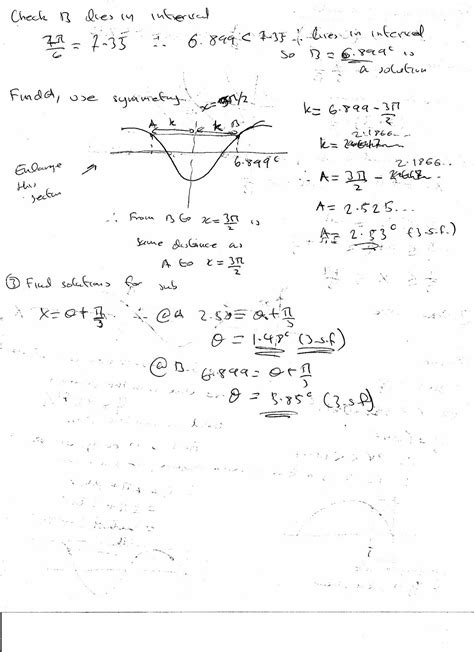 Check B lies in interval
7π/6 = 7.35 ∴ 6.899 < 7.35 ∴ lies in interval
so B = 6.899ᶜ is
a solution
Find A, use symmetry
x = 3π/2
A k k B
6.899ᶜ
Enlarge
this
section
k = 6.899 - 3π/2
2.1866...
k =
2.1866...
∴ A = 3π/2 -
A = 2.525...
A = 2.53ᶜ (3.s.f.)
∴ From B to x = 3π/2 is
same distance as
A to x = 3π/2
③ Find solutions for sub
X = θ + π/3 ∴ @A 2.53 = θ + π/3
θ = 1.48ᶜ (3.s.f)
@ B 6.899 = θ + π/3
θ = 5.85ᶜ (3.s.f)